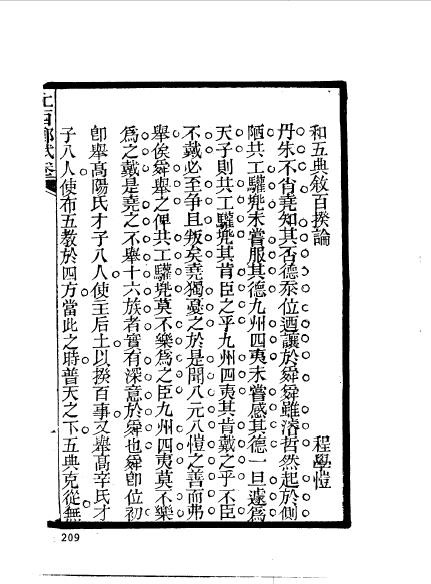 和五典敘百揆論
程學愷
丹朱不肖堯知其否德忝位迺讓於舜舜雖濬哲然起於側
陋共工驩兜未嘗服其德九州四夷未嘗感其德一旦遽爲
天子則共工驩兜其肯臣之乎九州四夷其肯戴之乎不臣
不戴必至爭且叛矣堯獨憂之於是聞八元八愷之善而弗
舉俟舜舉之俾共工驩兜莫不樂爲之臣九州四夷莫不樂
爲之戴是堯之不舉十六族者實有深意於舜也舜卽位初
卽舉高陽氏才子八人使主后土以揆百事又舉高辛氏才
子八人使布五敎於四方當此之時普天之下五典克從無
209